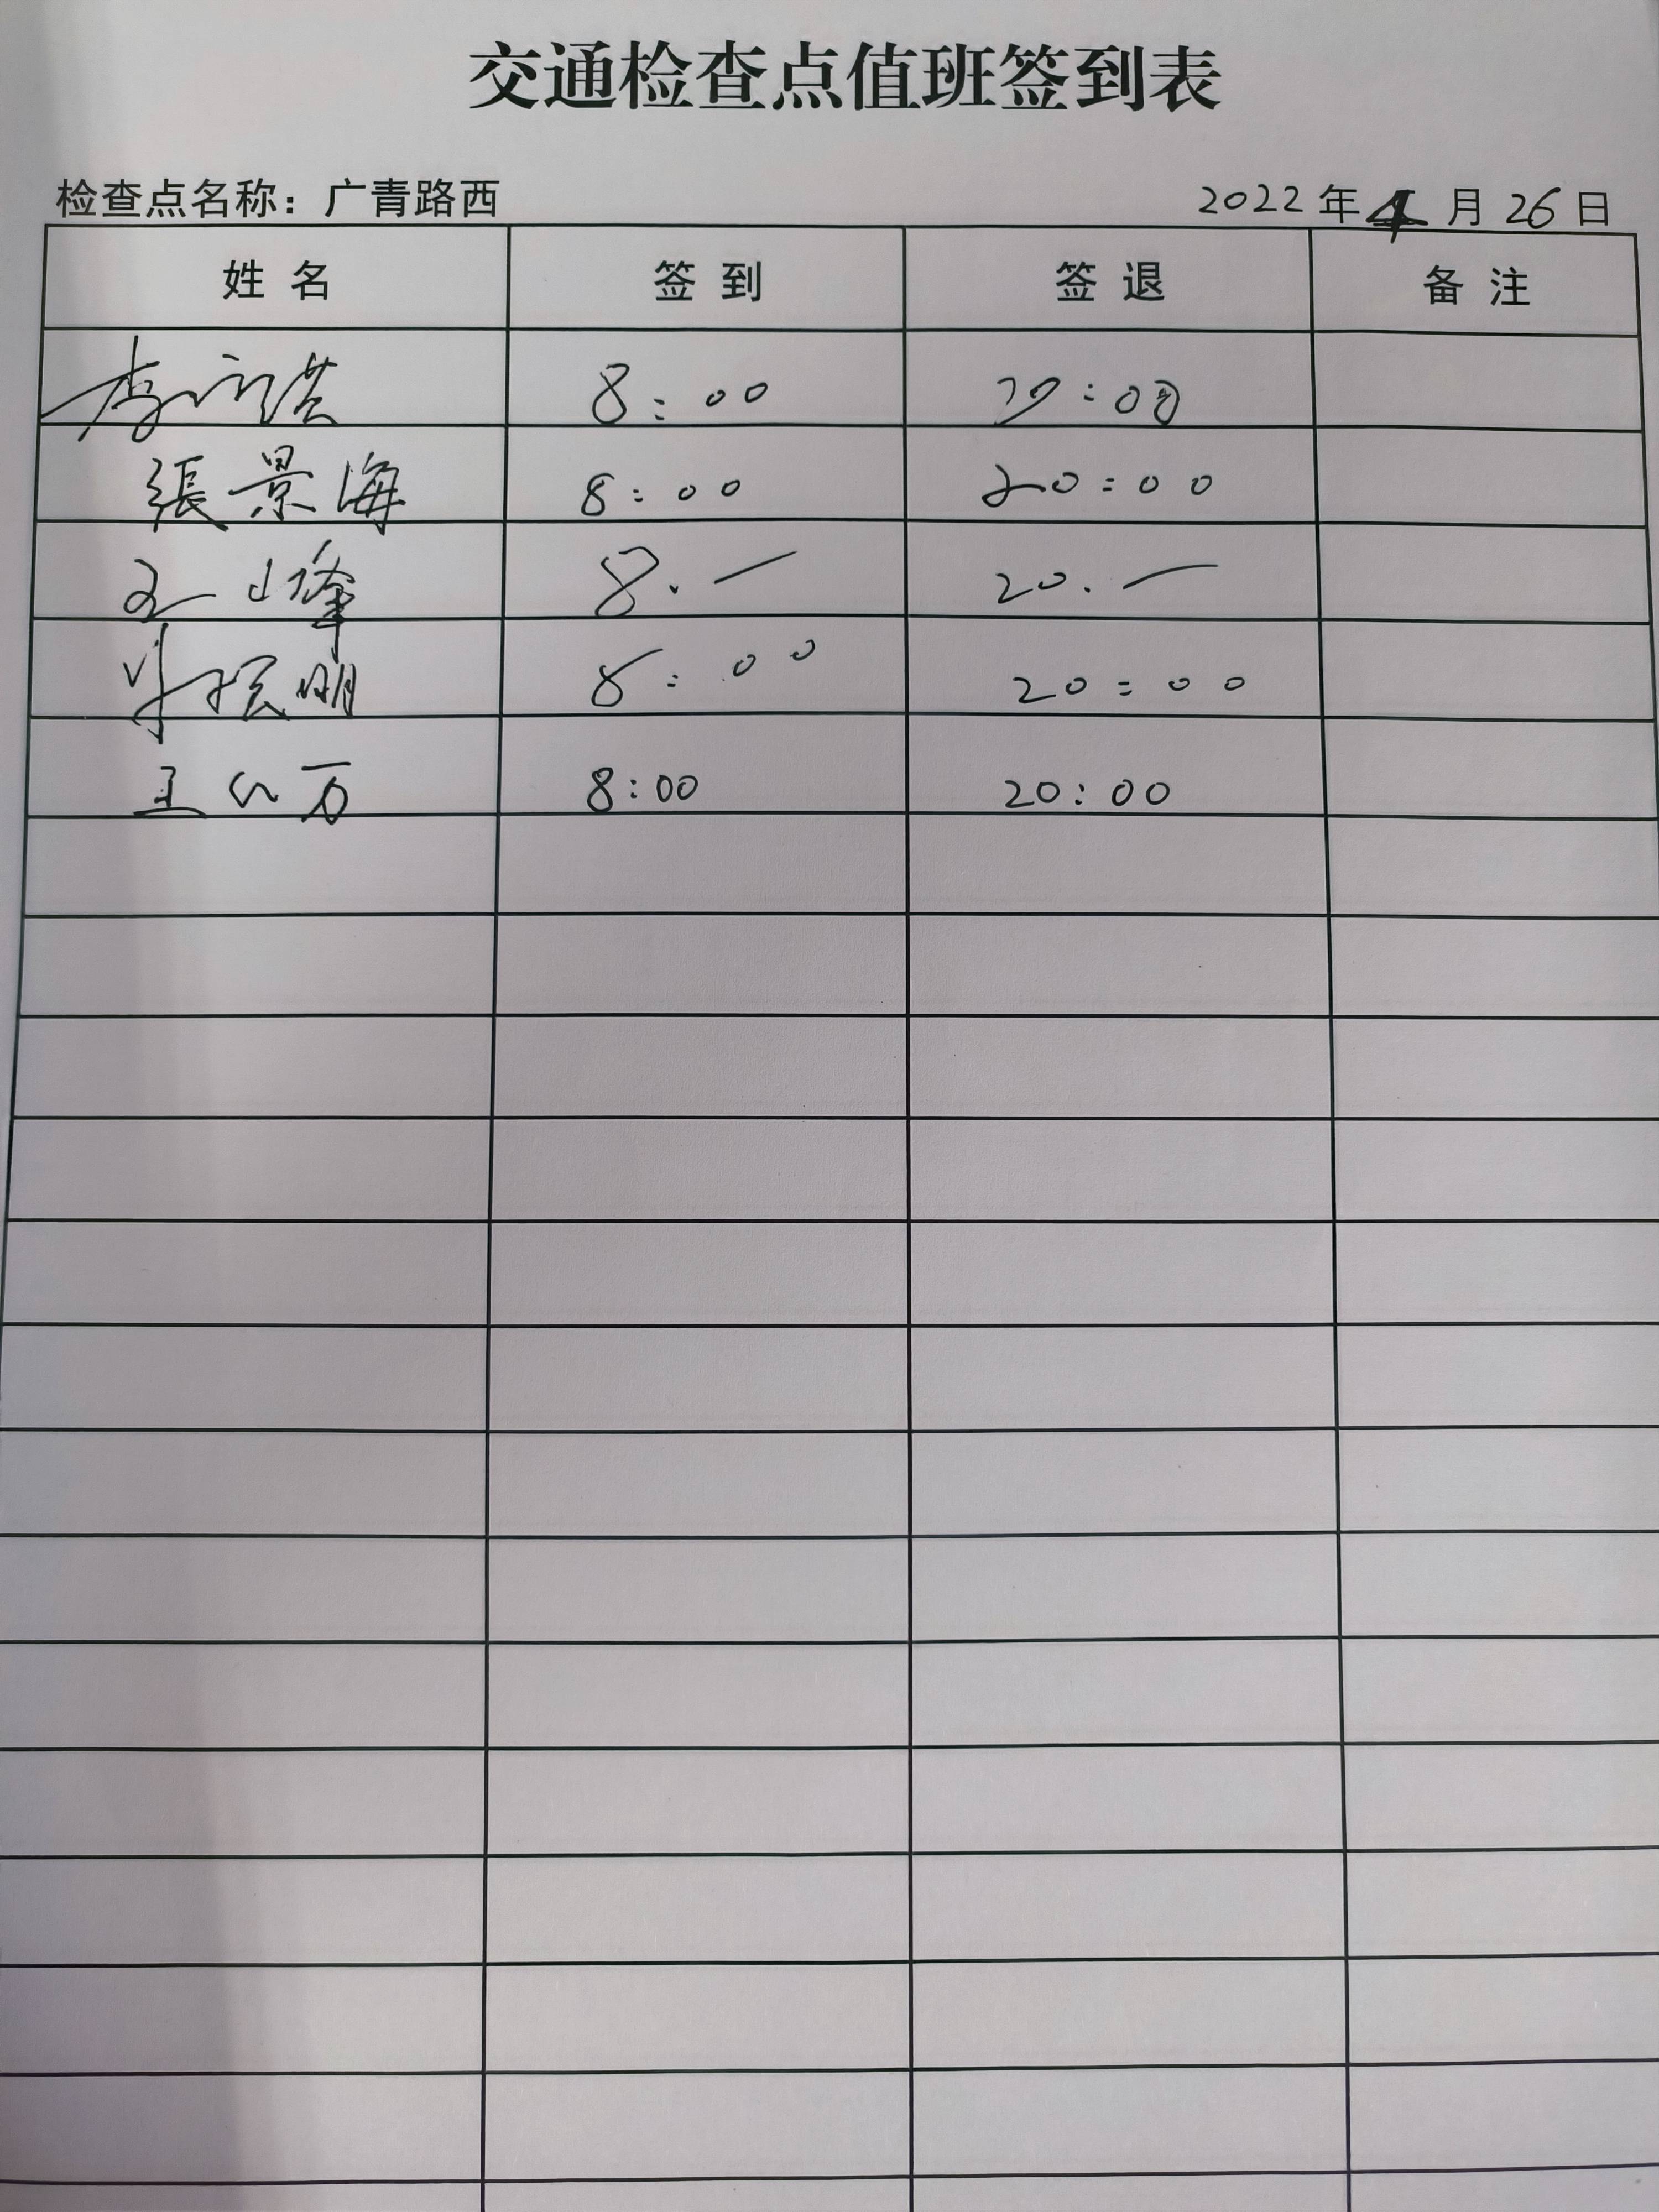 交通检查点值班签到表
检查点名称：广青路西 2022年4月26日
姓名 签到 签退 备注
8:00 :00
張景海 8:00 20:00
王山峰 8.— 20.—
明 8:00 20:00
王 万 8:00 20:00